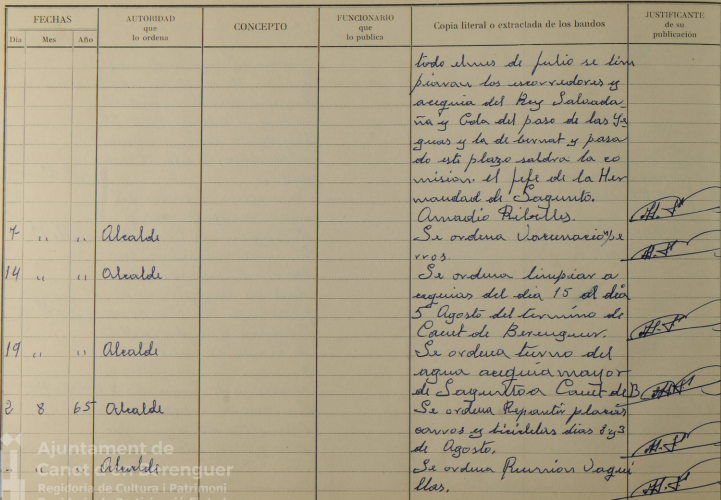 FECHAS
AUTORIDAD
que
lo ordena
CONCEPTO
FUNCIONARIO
que
lo publica
Copia literal o extractada de los bandos
JUSTIFICANTE
de su
publicación
Día Mes Año
todo el mes de Julio se lim
piaran los escorredores y
acequia del Rey Salvada
ña y Cola del paso de las Ye
guas y la de bernat y pasa
do este plazo saldra la co
mision. el jefe de la Her
mandad de Sagunto.
Amadio Ribelles.
7 " " Alcalde Se ordena Vacunacion pe
rros.
14 " " Alcalde Se ordena limpiar a
cequias del dia 15 al dia
5 Agosto del termino de
Canet de Berenguer.
19 " " Alcalde Se ordena turno del
agua acequia mayor
de Sagunto a Canet de B
2 8 65 Alcalde Se ordena Repartir placas
carros y bicicletas dias 8 y 3
de Agosto.
" " " Alcalde Se ordena Reunion Vaqui
llas.
Ajuntament de
Canet d'en Berenguer
Regidoria de Cultura i Patrimoni